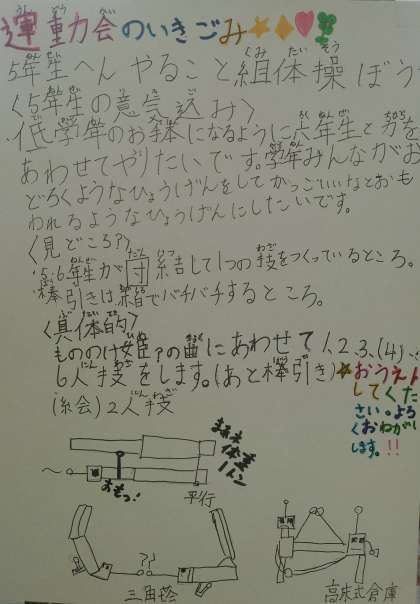 運動会のいきごみ
5年生へん やること組体操 ぼう
〈5年生の意気込み〉
・低学年のお手本になるように六年生と力を
あわせてやりたいです。学年みんながお
どろくようなひょうげんをしてかっこいいなとおも
われるようなひょうげんにしたいです。
〈見どころ?〉
・5.6年生が団結して1つの技をつくっているところ。
・棒引きは縮でバチバチするところ。
〈具体的〉
もののけ姫の曲にあわせて1、2、3、(4)、
6人技をします。(あと棒引き)
おうえん
してくだ
さい。よろ
くおねがい
します。!!
(絵)2人技
おもっ!
平行
三角塔
??
高床式倉庫